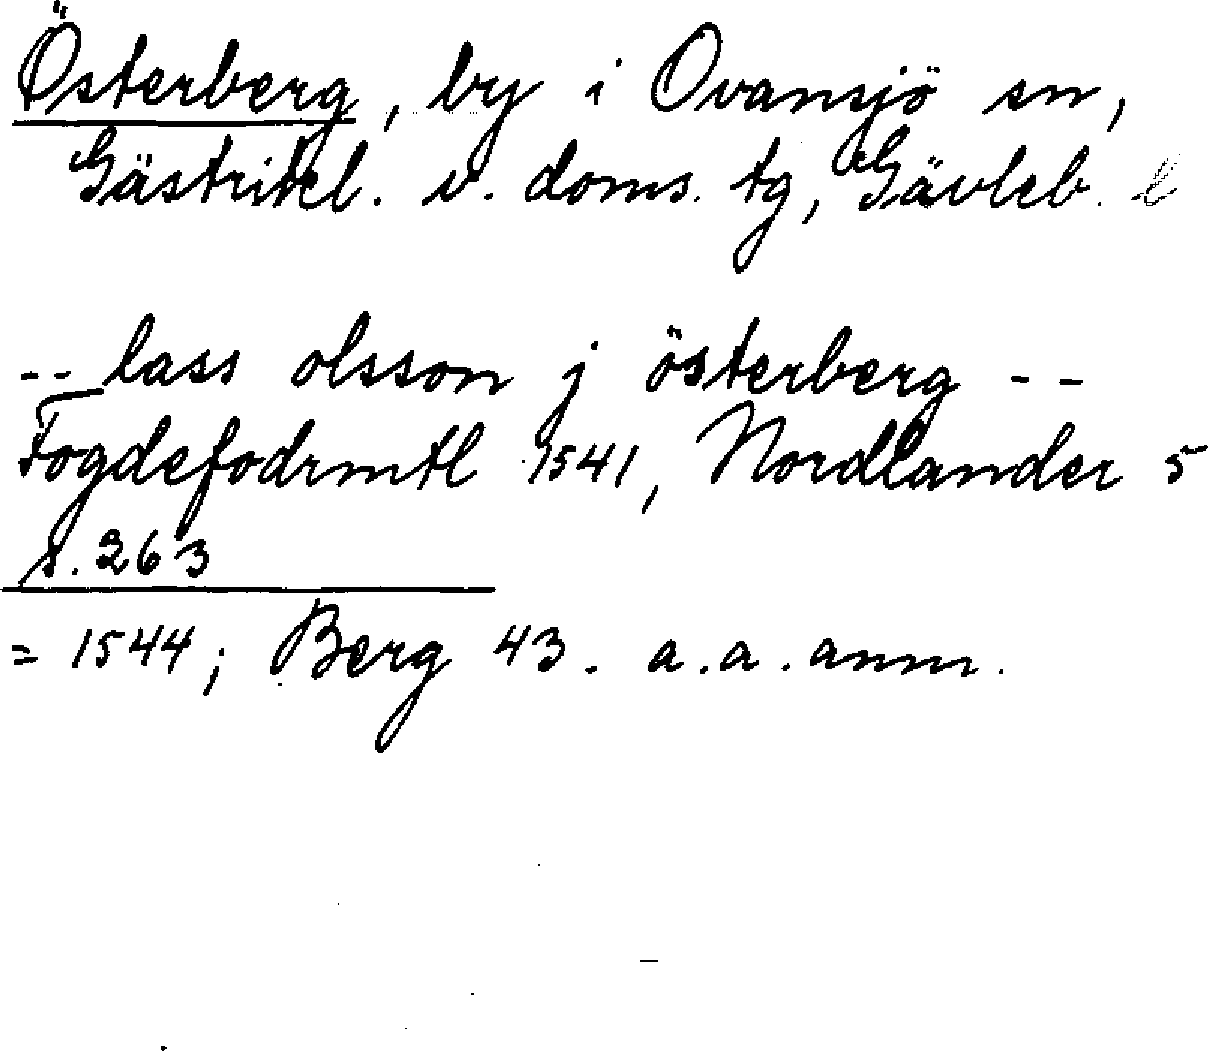 Österberg, by i Ovansjö sn,
Gästrikl. v. doms. tg, Gävleb. l
-- lass olsson j österberg --
Fogdefodrmtl 1541, Nordlander 5
s. 263
= 1544; Berg 43. a.a. anm.